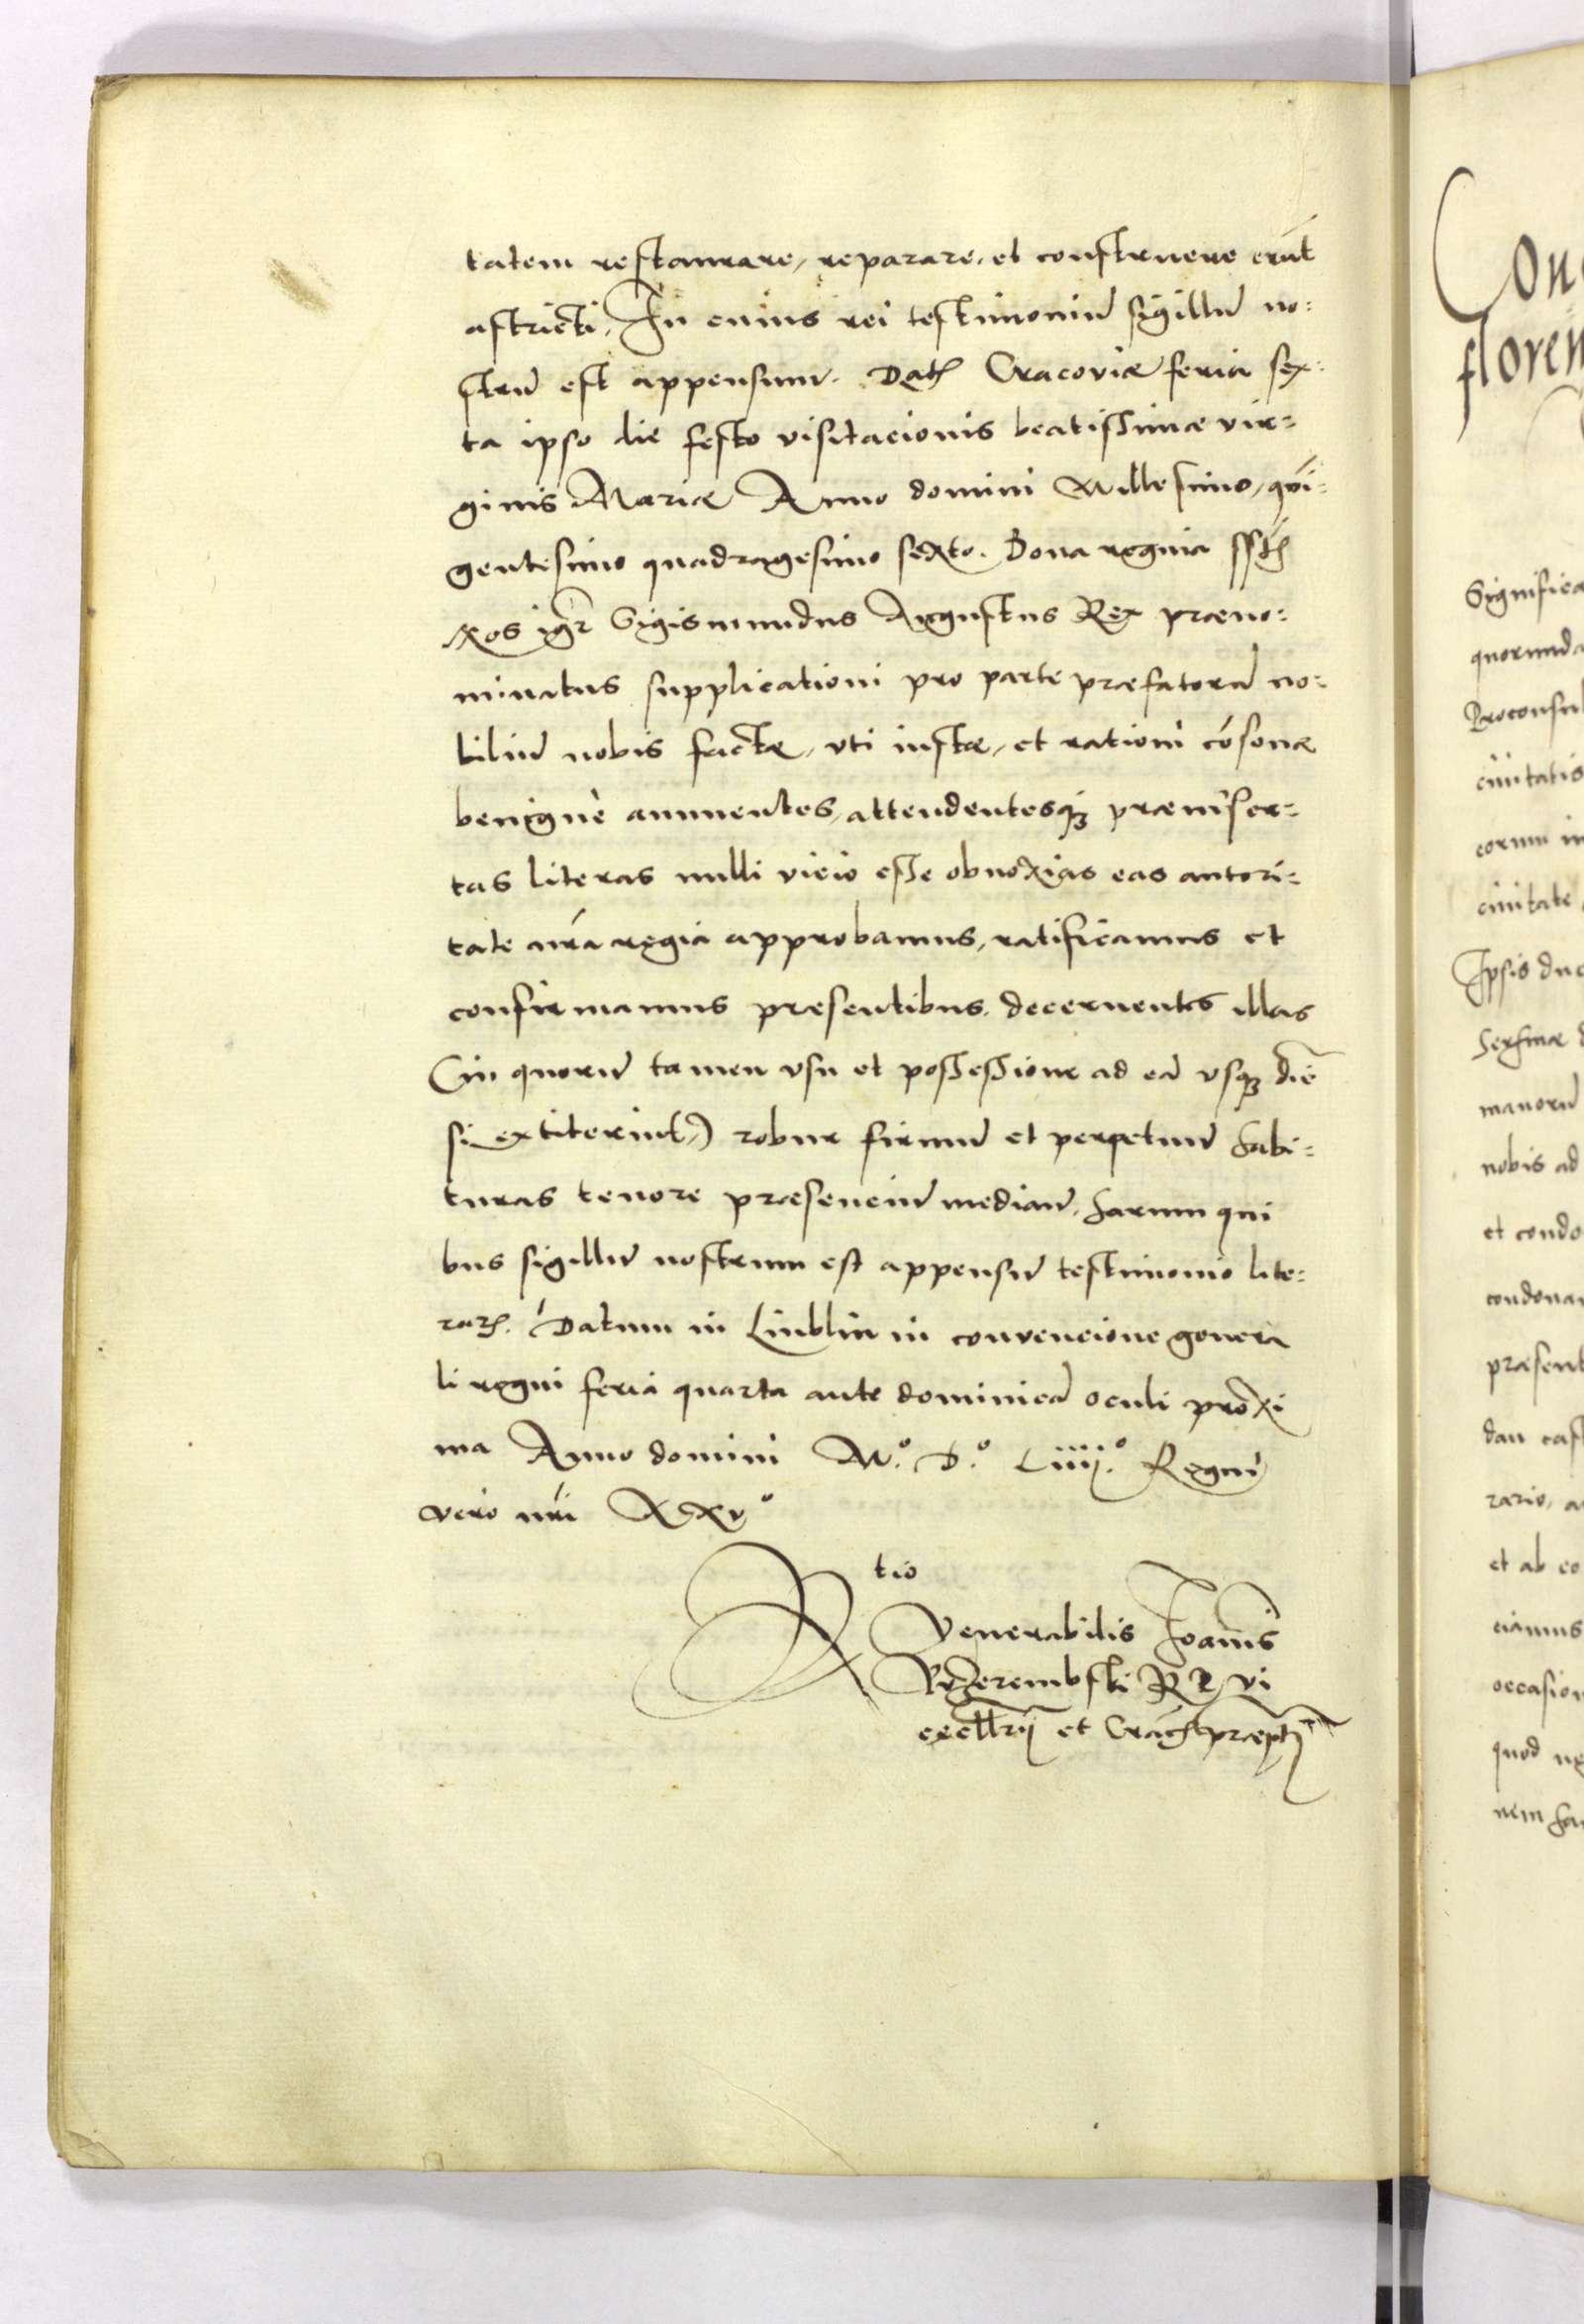 tatem restaurare, reparare, et construere erūt
astricti, In cuius rei testimoniū sigillū no:
strū est appensum. Datʒ Cracoviæ feria sex:
ta ipso die festo visitacionis beatissimæ vir=
ginis Mariæ Anno domini Millesimo, qūi:
gentesimo quadragesimo sexto. Bona regina ssʒ
Nos igr̄ Sigismundus Augustus Rex præno:
minatus supplicationi pro parte præfatorū no:
biliū nobis factæ, vti iustæ, et rationi cōsonæ
benignè annuentes, attendentesqʒ præinser=
tas literas nulli vicio esse obnoxias eas autori=
tate nr̄a regia approbamus, ratificamus et
confirmamus presentibus. decernentes illas
(in quorū tamen vsu et possessione ad eā vsqʒ diē
si extiterint,) robur firmū et perpetuū habi=
turas tenore præsenciū median̄. harum qui
bus sigillū nostrum est appensū testimonio lite:
rarʒ. Datum in Liublin in convencione genera
li regni feria quarta ante dominicā oculi proxi
ma Anno domini M.º D.º Liiij.º Regni
vero nr̄i XXvº
R tio
Venerabilis Joannis
Przerembski R P vi
cecllr̄ij et Crac̄ præptʒ
Con
floren
Significa
quorunda
Proconsul
ciuitatis
eorum in
ciuitate
Ipsis duc
Serʃmæ
manorū
nobis ad
et condo
condonar
præsent
dan cast
rario, a
et ab eo
ciamus
occasion
quod ne
nem ha